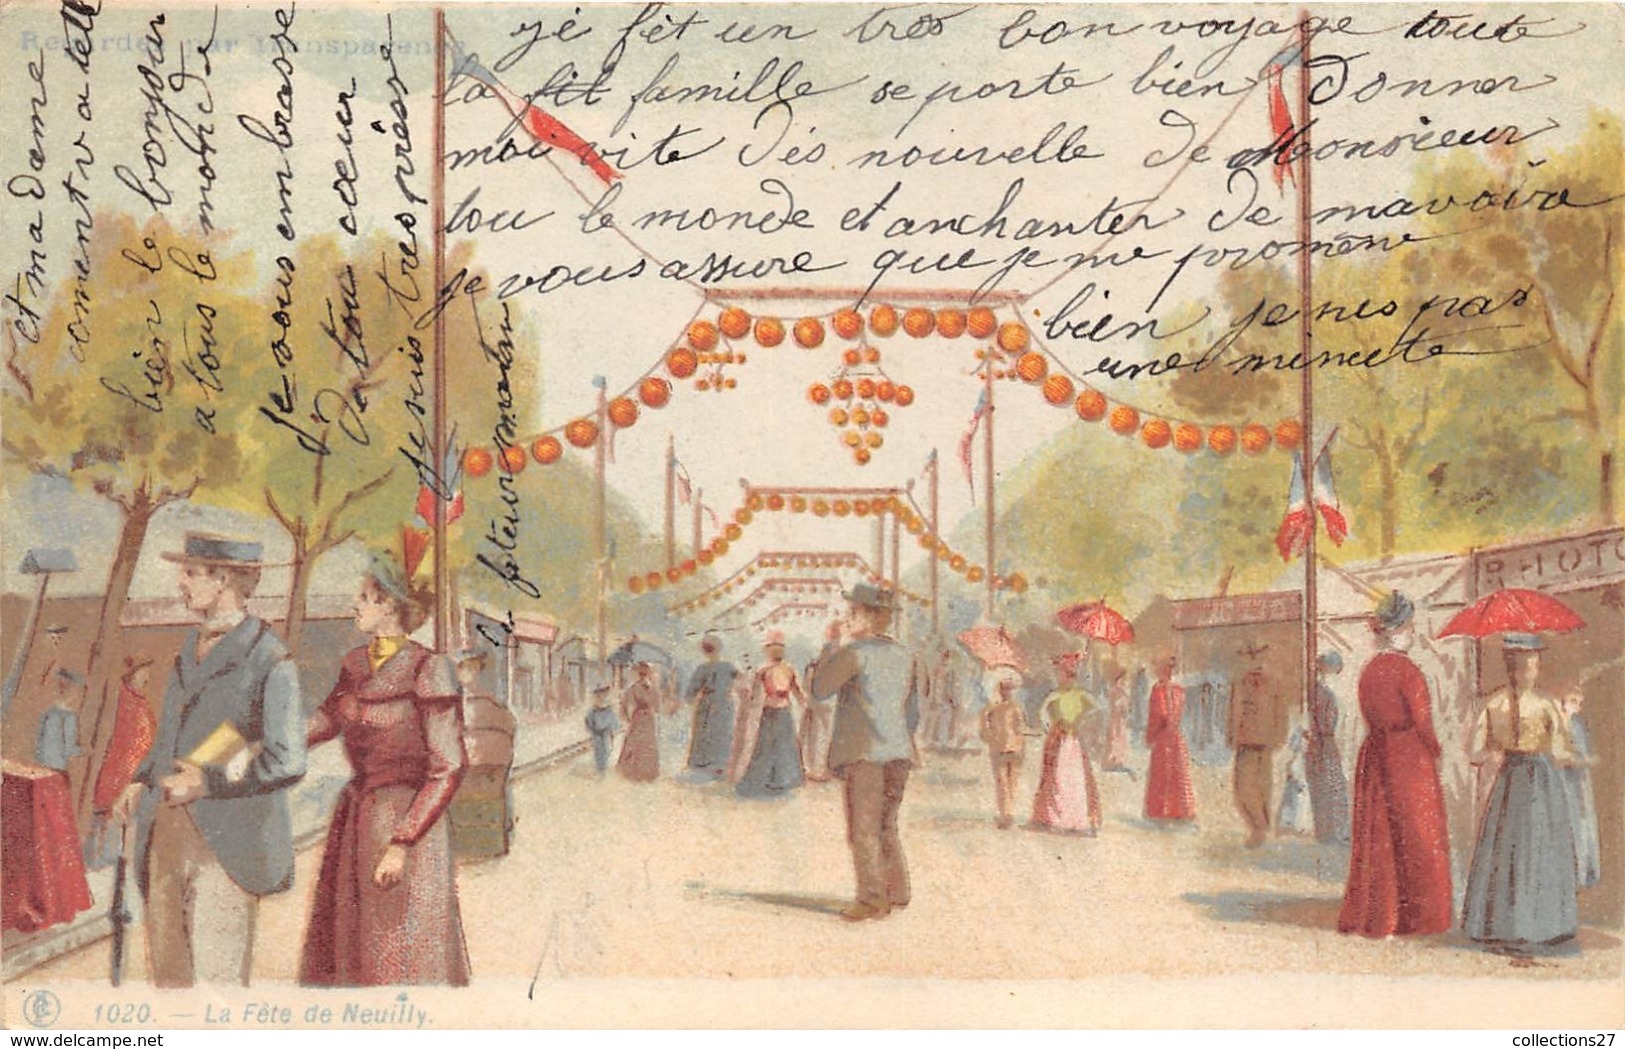 Regardez par transparence
jé fèt un tres bon voyage toute
la fil famille se porte bien Donner
moi vite dés nouvelle de Monsieur
tou le monde et anchanter de mavoire
je vous assure que je me promène
bien je nes pas
une minute
et madame
coment va tell
bien le bonjour
a tous le monde
Je vous embrasse
Da tou cœur
je suis tres prèsse
PHOTO
1020. — La Fête de Neuilly.
collections27
www.delcampe.net